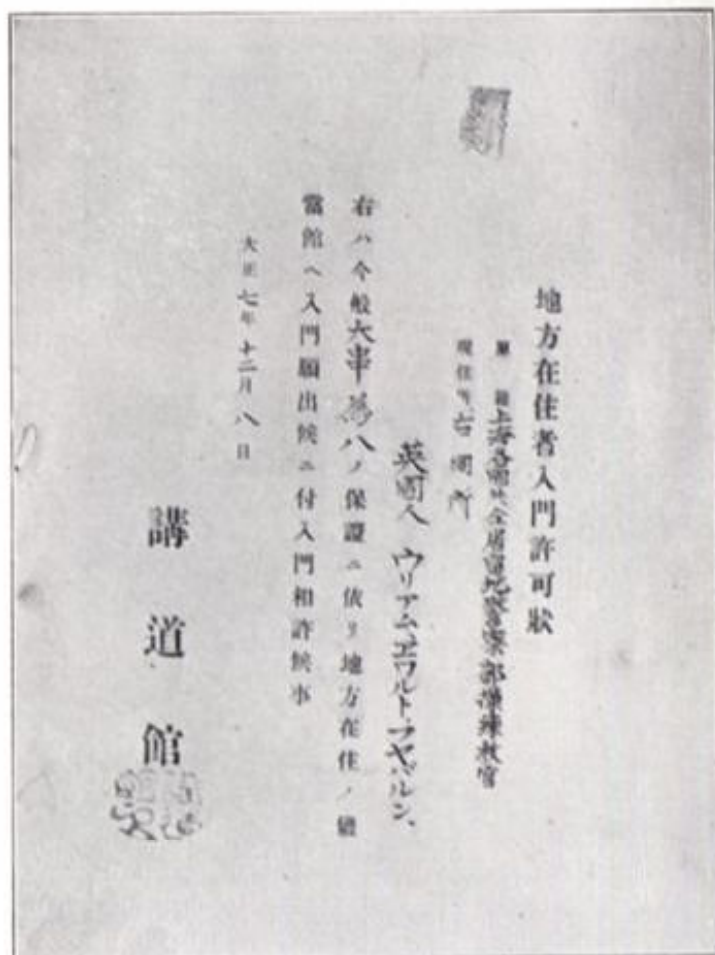 地方在住者入門許可狀
原籍 上海各國共仝居留地警察部漕練教官
現住所 右 同所
英國人 ウリアムエワルト・フヤバルン、
右ハ今般大串 八ノ保證ニ依リ地方在住ノ儘
當館ヘ入門願出候ニ付入門相許候事
大正七年十二月八日
講道館